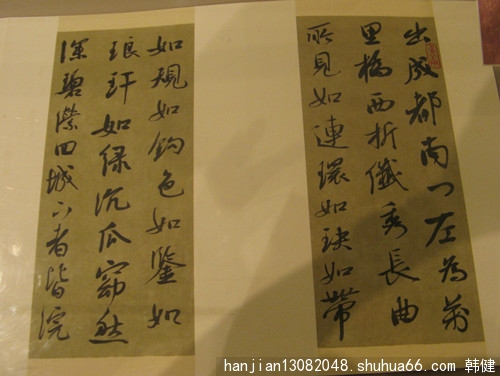 出成都南门左为万
里桥西折纤秀长曲
所见如连环如玦如带
如规如钩色如鉴如
琅玕如绿沉瓜窈然
深碧潆回城下者皆浣
hanjian13082048.shuhua66.com 韩健